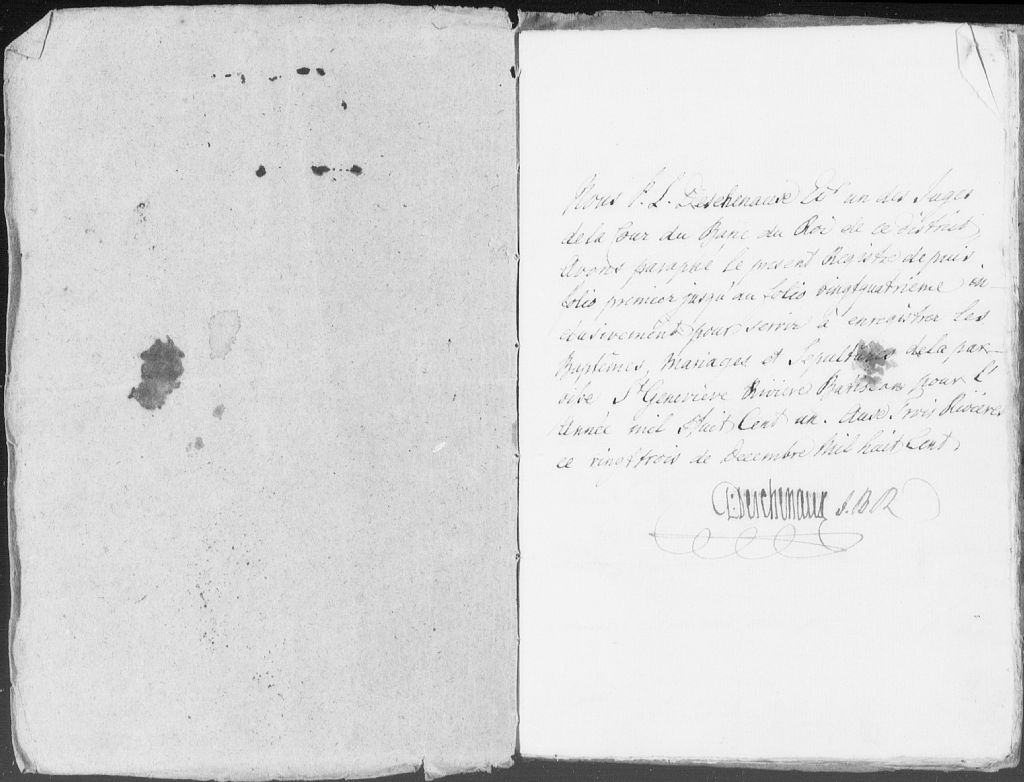 Nous P. L. Deschenaux Ecr un des Juges
de la Cour du Banc du Roi de ce district,
Avons paraphé le present Registre depuis
folio premier jusqu'au folio vingtquatrieme in
clusivement pour servir à enregistrer les
Baptêmes, Mariages et Sepultures de la par-
oisse St Genevieve Riviere Batiscan pour l'
Année mil Huit Cent un. Aux Trois Rivieres
ce vingt trois de Decembre Mil huit Cent,
PLDeschenaux J. B R